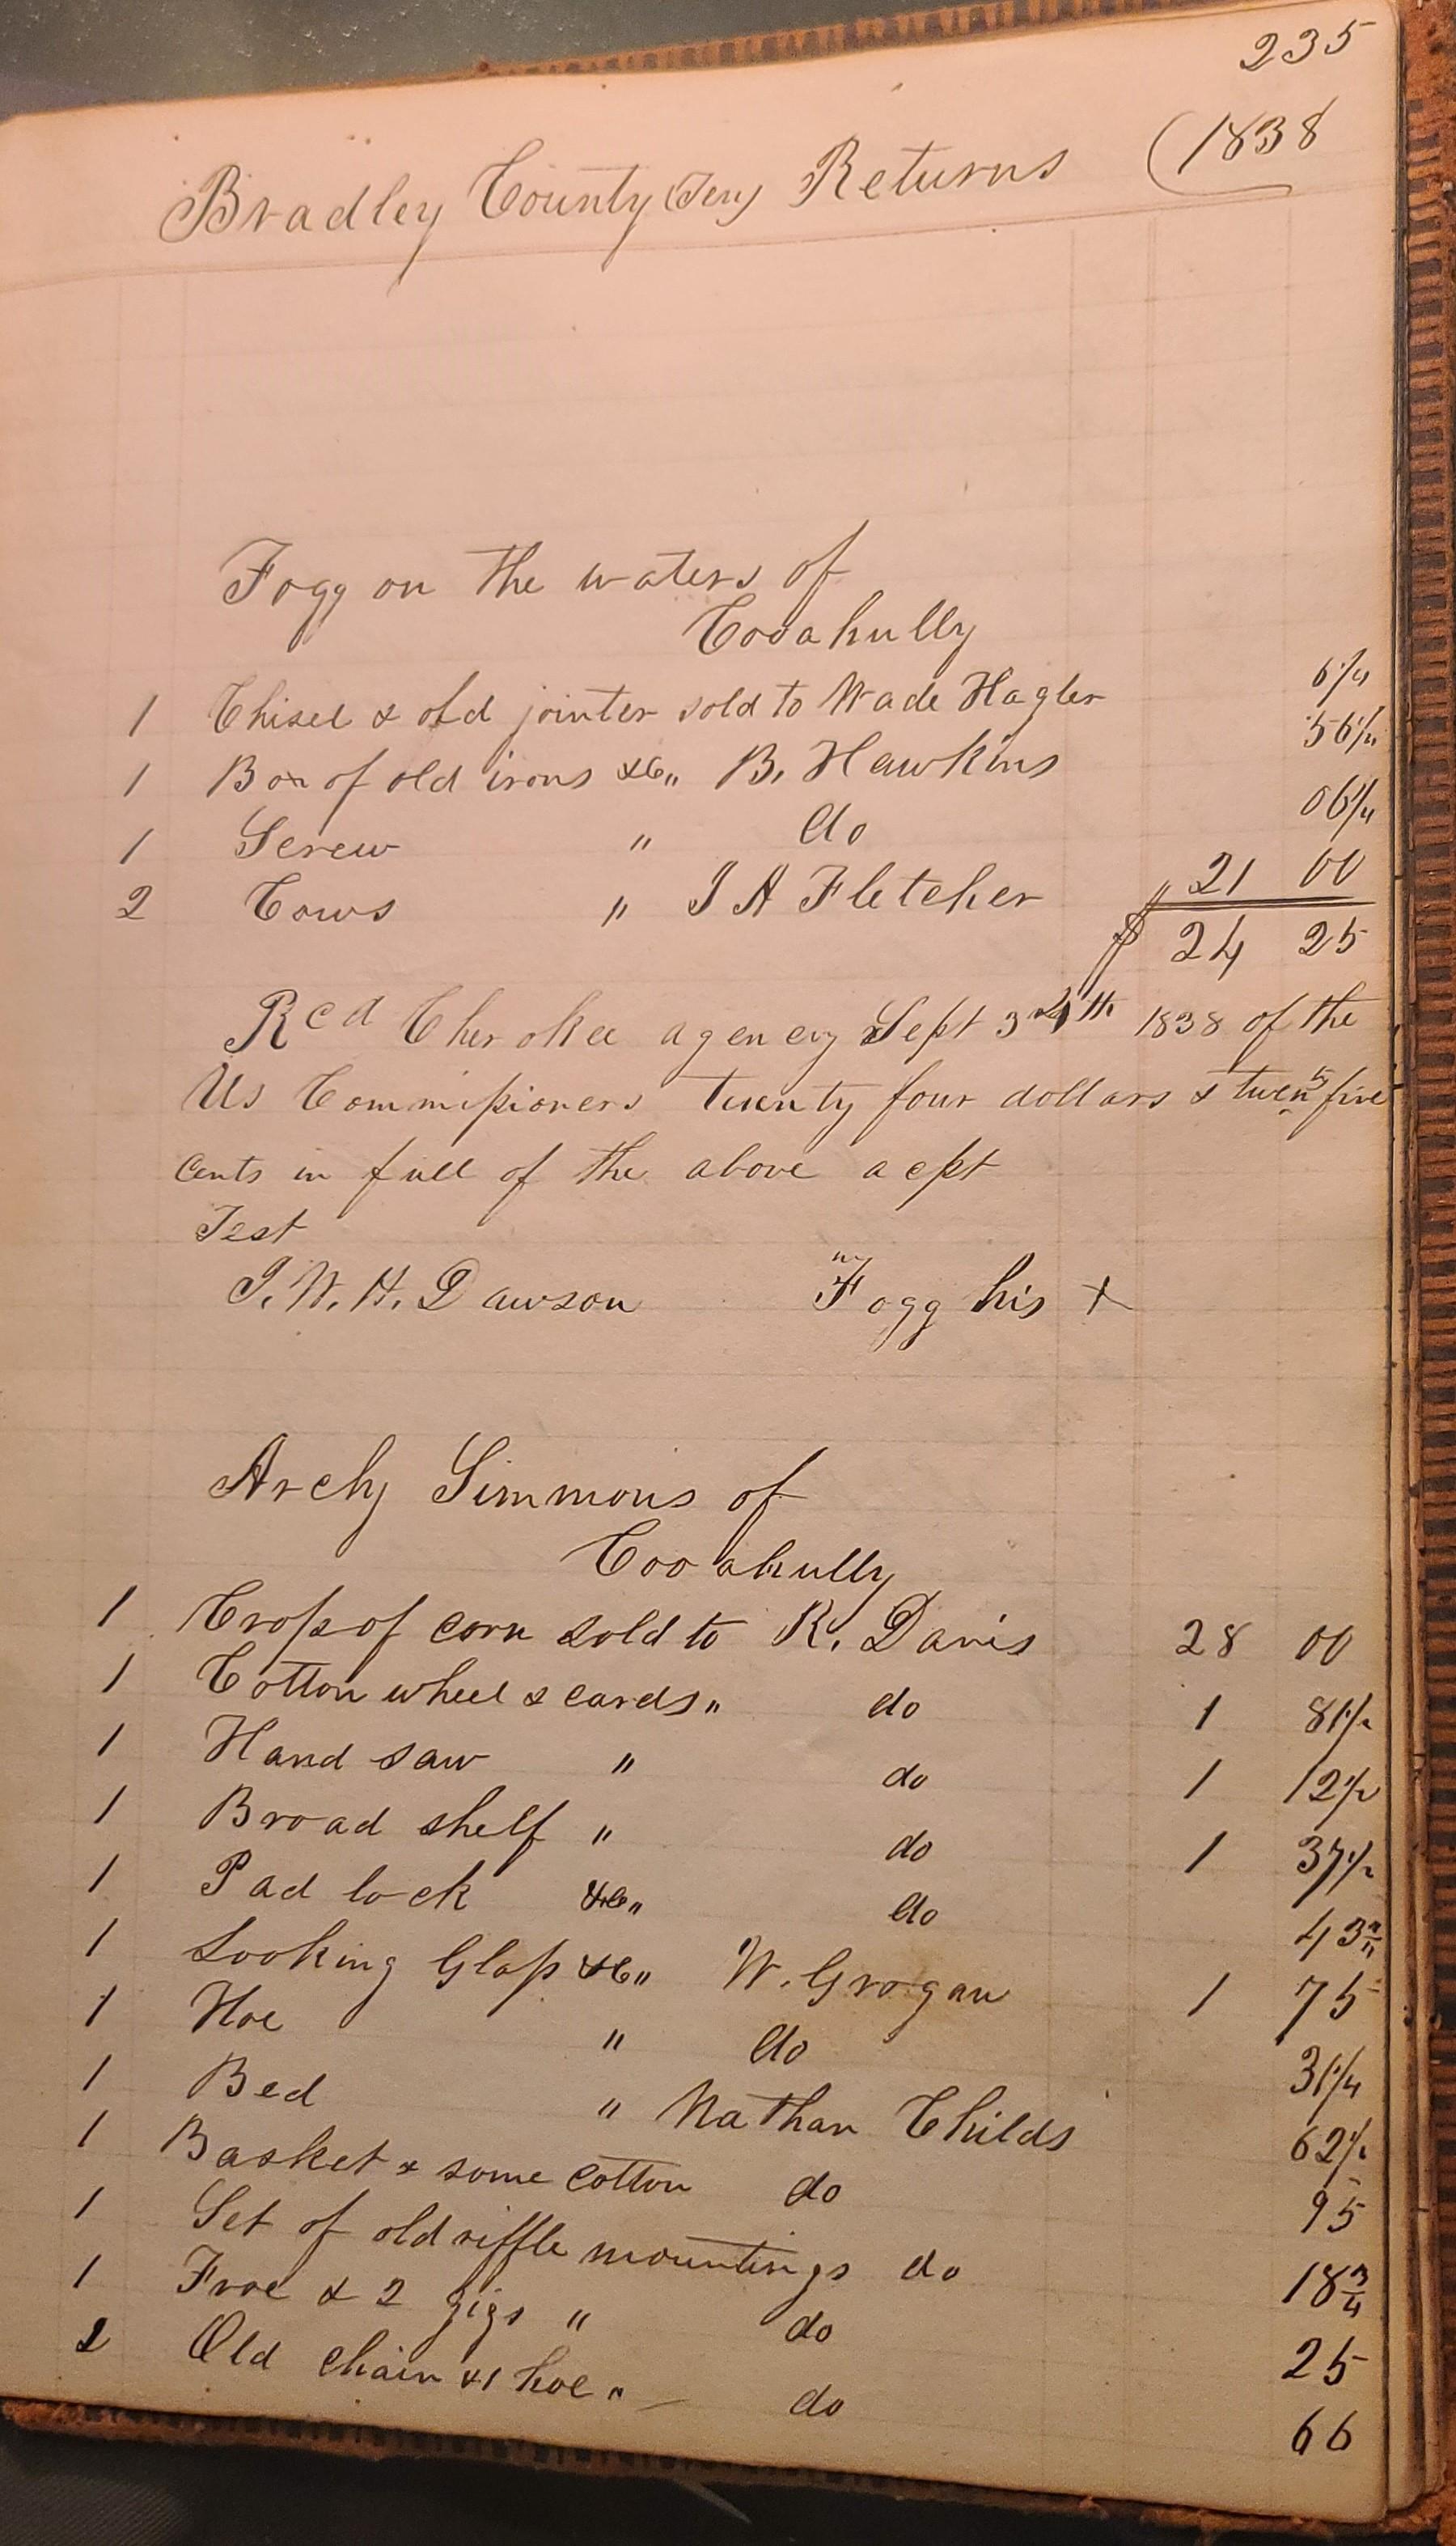 235
Bradley County (Ten) Returns (1838
Fogg on the waters of
Cooahully
1 Chisel & old jointer sold to Wade Hagler 6 1/4
1 Box of old irons &c " B. Hawkins 56 1/4
1 Screw " do 06 1/4
2 Cows " J A Fletcher " 21 00
$ 24 25
Rcd Cherokee agency Sept 1838 of the
Us Commissioners twenty four dollars & twenty five
cents in full of the above acpt
Test
J. W. H. Dawson Fogg his +
Archy Simmons of
Cooahully
1 Crop of corn sold to R. Davis 28 00
1 Cotton wheel & cards " do 1 81 1/2
1 Hand saw " do 1 12 1/2
1 Broad shelf " do 1 37 1/2
1 Pad lock &c " do 43 3/4
1 Looking Glass &c " W. Grogan 1 75
1 Hoe " do 31 1/4
1 Bed " Nathan Childs 62 1/2
1 Basket & some cotton do 95
1 Set of old riffle mountings do 18 3/4
1 Froe & 2 gigs " do 25
2 Old chair & 1 hoe " do 66